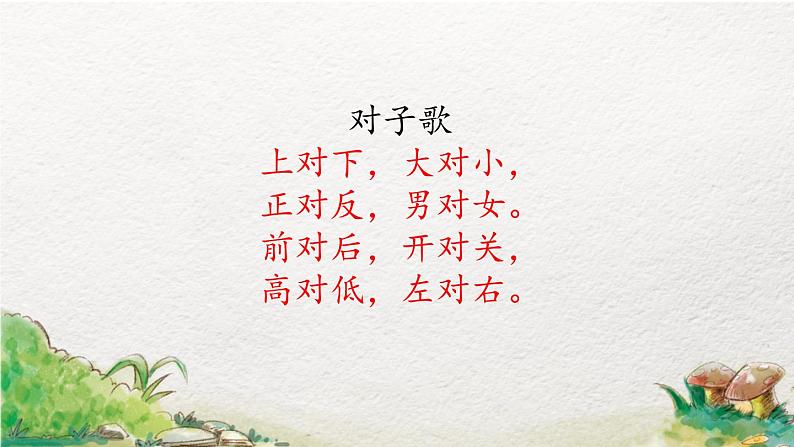 对子歌
上对下，大对小，
正对反，男对女。
前对后，开对关，
高对低，左对右。